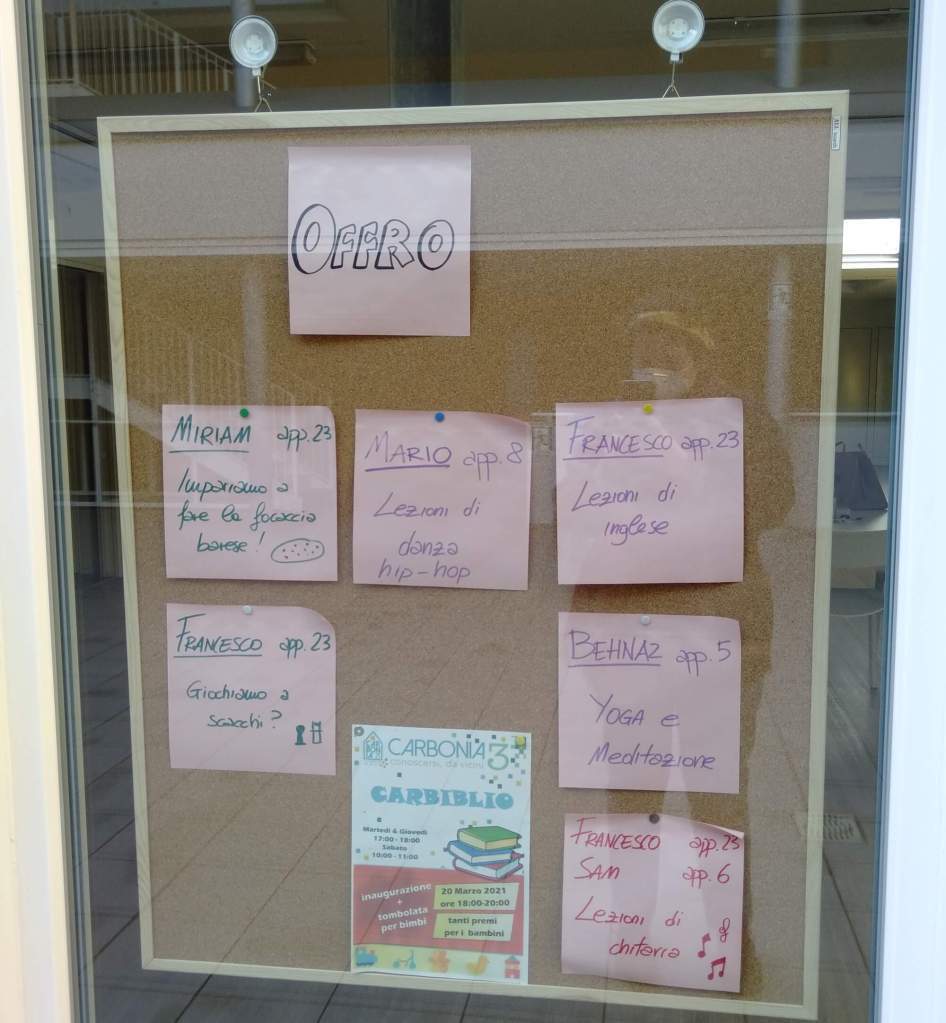 OFFRO
MIRIAM app. 23
Impariamo a
fare la focaccia
barese!
MARIO app. 8
Lezioni di
danza
hip-hop
FRANCESCO app. 23
Lezioni di
inglese
FRANCESCO app. 23
Giochiamo a
scacchi?
BEHNAZ app. 5
YOGA e
Meditazione
CARBONIA 3
conoscersi, da vicini
CARBIBLIO
Martedì & Giovedì
17:00 - 18:00
Sabato
10:00 - 11:00
inaugurazione
+
tombolata
per bimbi
20 Marzo 2021
ore 18:00-20:00
tanti premi
per i bambini
FRANCESCO app. 23
SAM app. 6
Lezioni di
chitarra